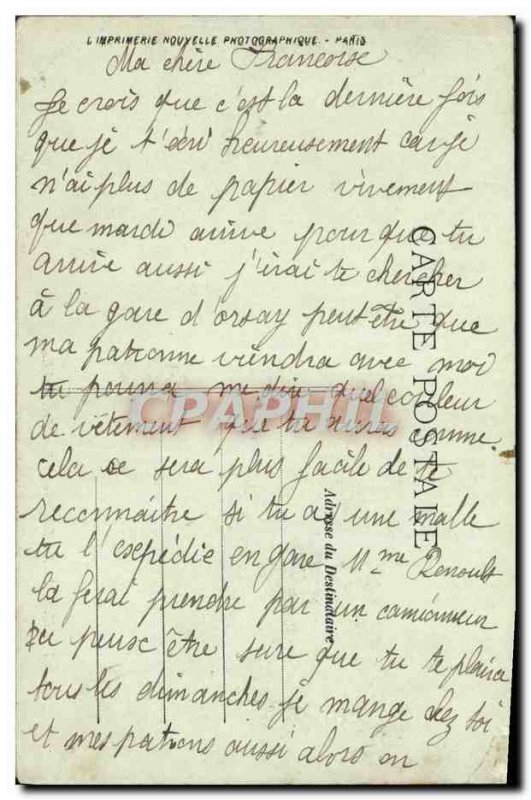 L'IMPRIMERIE NOUVELLE PHOTOGRAPHIQUE - PARIS
Ma chère Francoise
Je crois que c'est la dernière fois
que je t'écri heureusement car je
n'ai plus de papier vivement
que mardi arrive pour que tu
arrive aussi j'irai te chercher
à la gare d'orsay peut être que
ma patronne viendra avec moi
tu pourra me dire quel couleur
de vêtement que tu auras comme
cela ce sera plus facile de te
reconnaitre si tu a une malle
tu l'esepédie en gare Mme Renoult
la ferai prendre par un camionneur
tu peuse être sure que tu te plaira
tous les dimanches je mange chez toi
et mes patrons aussi alors on
CARTE POSTALE
Adresse du Destinataire
CPAPHIL